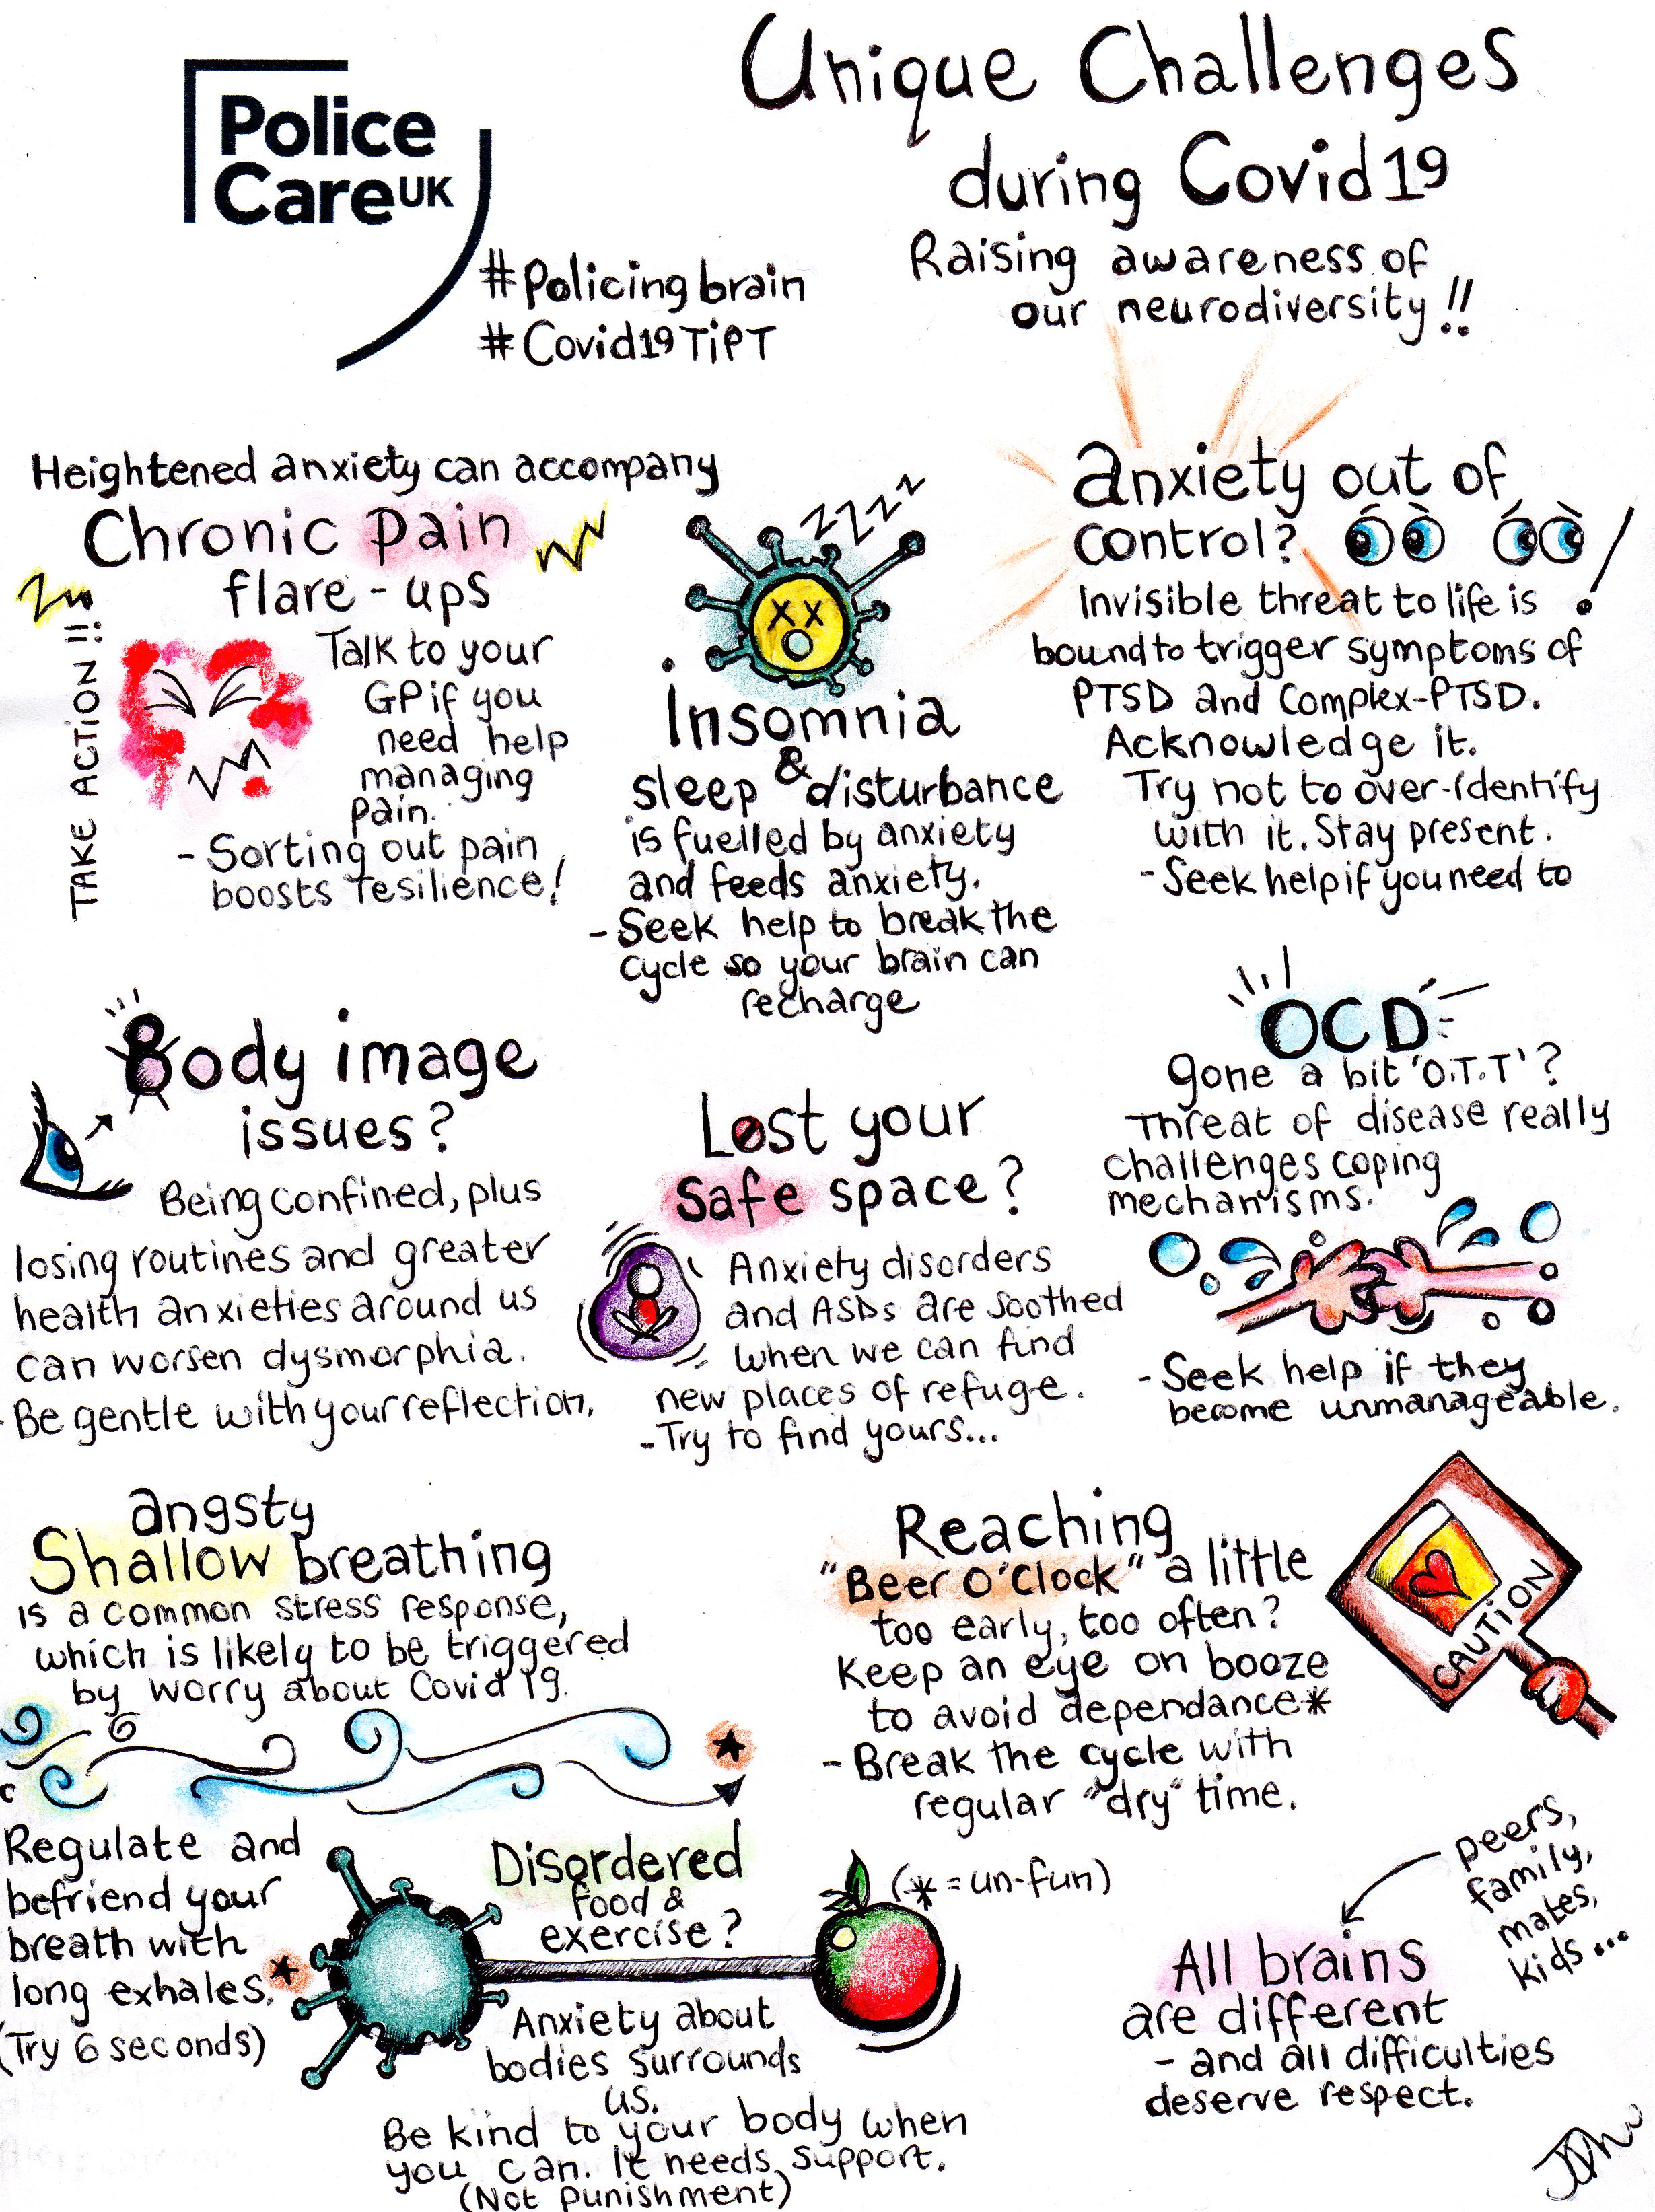 Police
Care UK
#Policingbrain
#Covid19TiPT
Unique Challenges
during Covid19
Raising awareness of
our neurodiversity!!
Heightened anxiety can accompany
Chronic pain
flare-ups
TAKE ACTION!!
Talk to your
GP if you
need help
managing
pain.
- Sorting out pain
boosts resilience!
zzzz
Insomnia
&
sleep disturbance
is fuelled by anxiety
and feeds anxiety.
- Seek help to break the
cycle so your brain can
recharge
anxiety out of
control? !
Invisible threat to life is
bound to trigger symptoms of
PTSD and Complex-PTSD.
Acknowledge it.
Try not to over-identify
with it. Stay present.
- Seek help if you need to
Body image
issues?
Being confined, plus
losing routines and greater
health anxieties around us
can worsen dysmorphia.
- Be gentle with your reflection.
Lost your
safe space?
Anxiety disorders
and ASDs are soothed
when we can find
new places of refuge.
- Try to find yours...
OCD
gone a bit 'O.T.T'?
Threat of disease really
challenges coping
mechanisms.
- Seek help if they
become unmanageable.
angsty
Shallow breathing
is a common stress response,
which is likely to be triggered
by worry about Covid 19.
Regulate and
befriend your
breath with
long exhales.
(Try 6 seconds)
Reaching
"Beer O'Clock" a little
too early, too often?
Keep an eye on booze
to avoid dependance*
- Break the cycle with
regular "dry" time.
(* = un-fun)
CAUTION
Disordered
food &
exercise?
Anxiety about
bodies surrounds
us.
Be kind to your body when
you can. It needs support.
(Not punishment)
peers,
family,
mates,
kids...
All brains
are different
- and all difficulties
deserve respect.